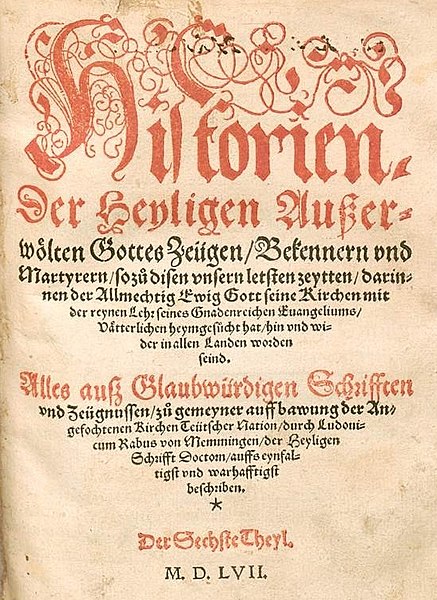 Historien.
Der Heyligen Außer-
wölten Gottes Zeügen/Bekennern vnd
Martyrern/so zů disen vnsern letsten zeytten/darin-
nen der Allmechtig Ewig Gott seine Kirchen mit
der reynen Lehr seines Gnadenreichen Euangeliums/
Vätterlichen heymgesůcht hat/hin vnd wi-
der in allen Landen worden
seind.
Alles auß Glaubwürdigen Schrifften
vnd Zeügnussen/zů gemeyner auffbawung der An-
gefochtenen Kirchen Teütscher Nation/durch Ludoui-
cum Rabus von Memmingen/der Heyligen
Schrifft Doctorn/auffs eynfal-
tigst vnd warhafftigst
beschriben.
*
Der Sechste Theyl.
M. D. LVII.